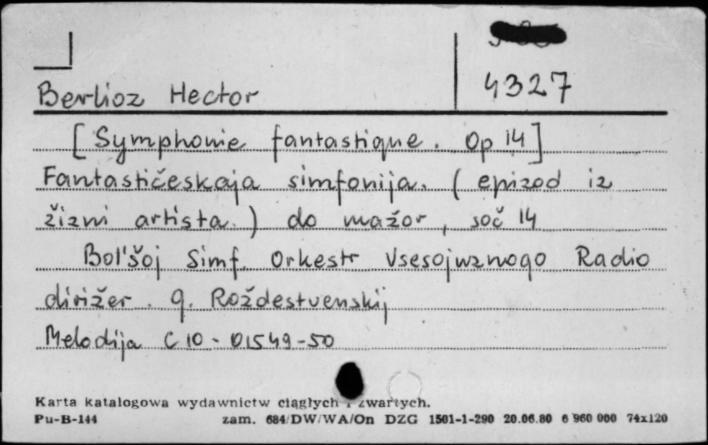 4327
Berlioz Hector
[Symphonie fantastique. Op 14]
Fantastičeskaja simfonija. (epizod iz
žizni artista.) do mažor, soč 14
Bol'šoj Simf. Orkestr Vsesojuznogo Radio
dirižer. G. Roždestvenskij
Melodija C 10 - 01549-50
Karta katalogowa wydawnictw ciągłych i zwartych.
Pu-B-144 zam. 684/DW/WA/On DZG 1501-1-290 20.06.80 6 960 000 74x120